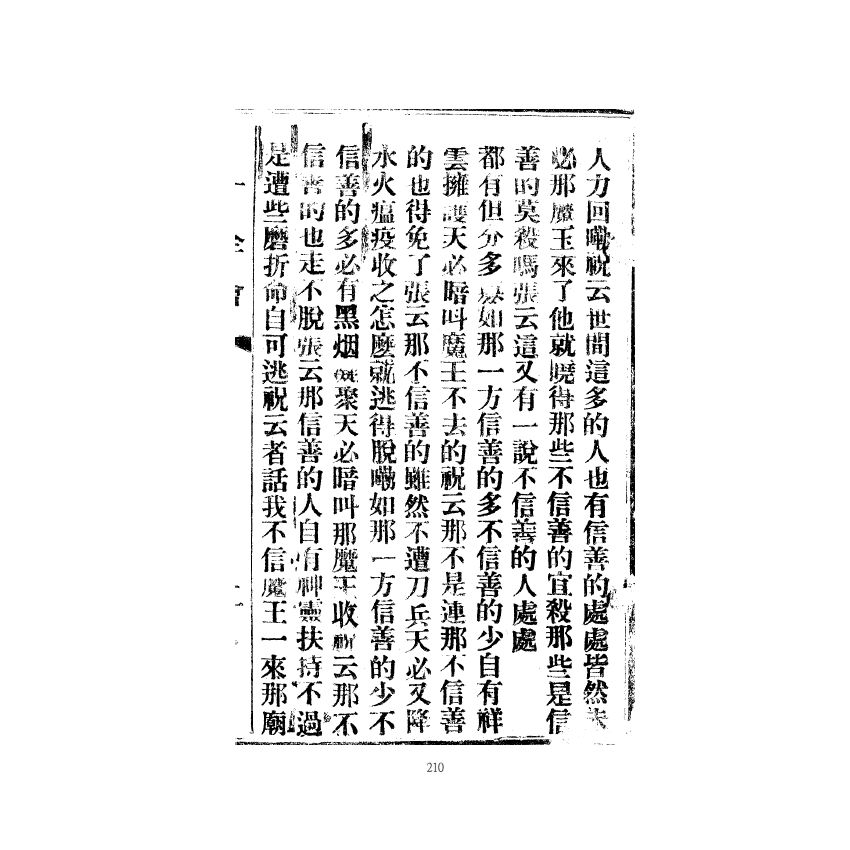 人力回嘞祝云世間這多的人也有信善的處處皆然未
必那魔王來了他就曉得那些不信善的宜殺那些是信
善的莫殺嗎張云這又有一說不信善的人處處
都有但分多寡如那一方信善的多不信善的少自有祥
雲擁護天必暗叫魔王不去的祝云那不是連那不信善
的也得免了張云那不信善的雖然不遭刀兵天必又降
水火瘟疫收之怎麼就逃得脫嘞如那一方信善的少不
信善的多必有黑烟 聚天必暗叫那魔王收祝云那不
信善的也走不脫張云那信善的人自有神靈扶持不過
是遭些磨折命自可逃祝云者話我不信魔王一來那廟
十全會
210